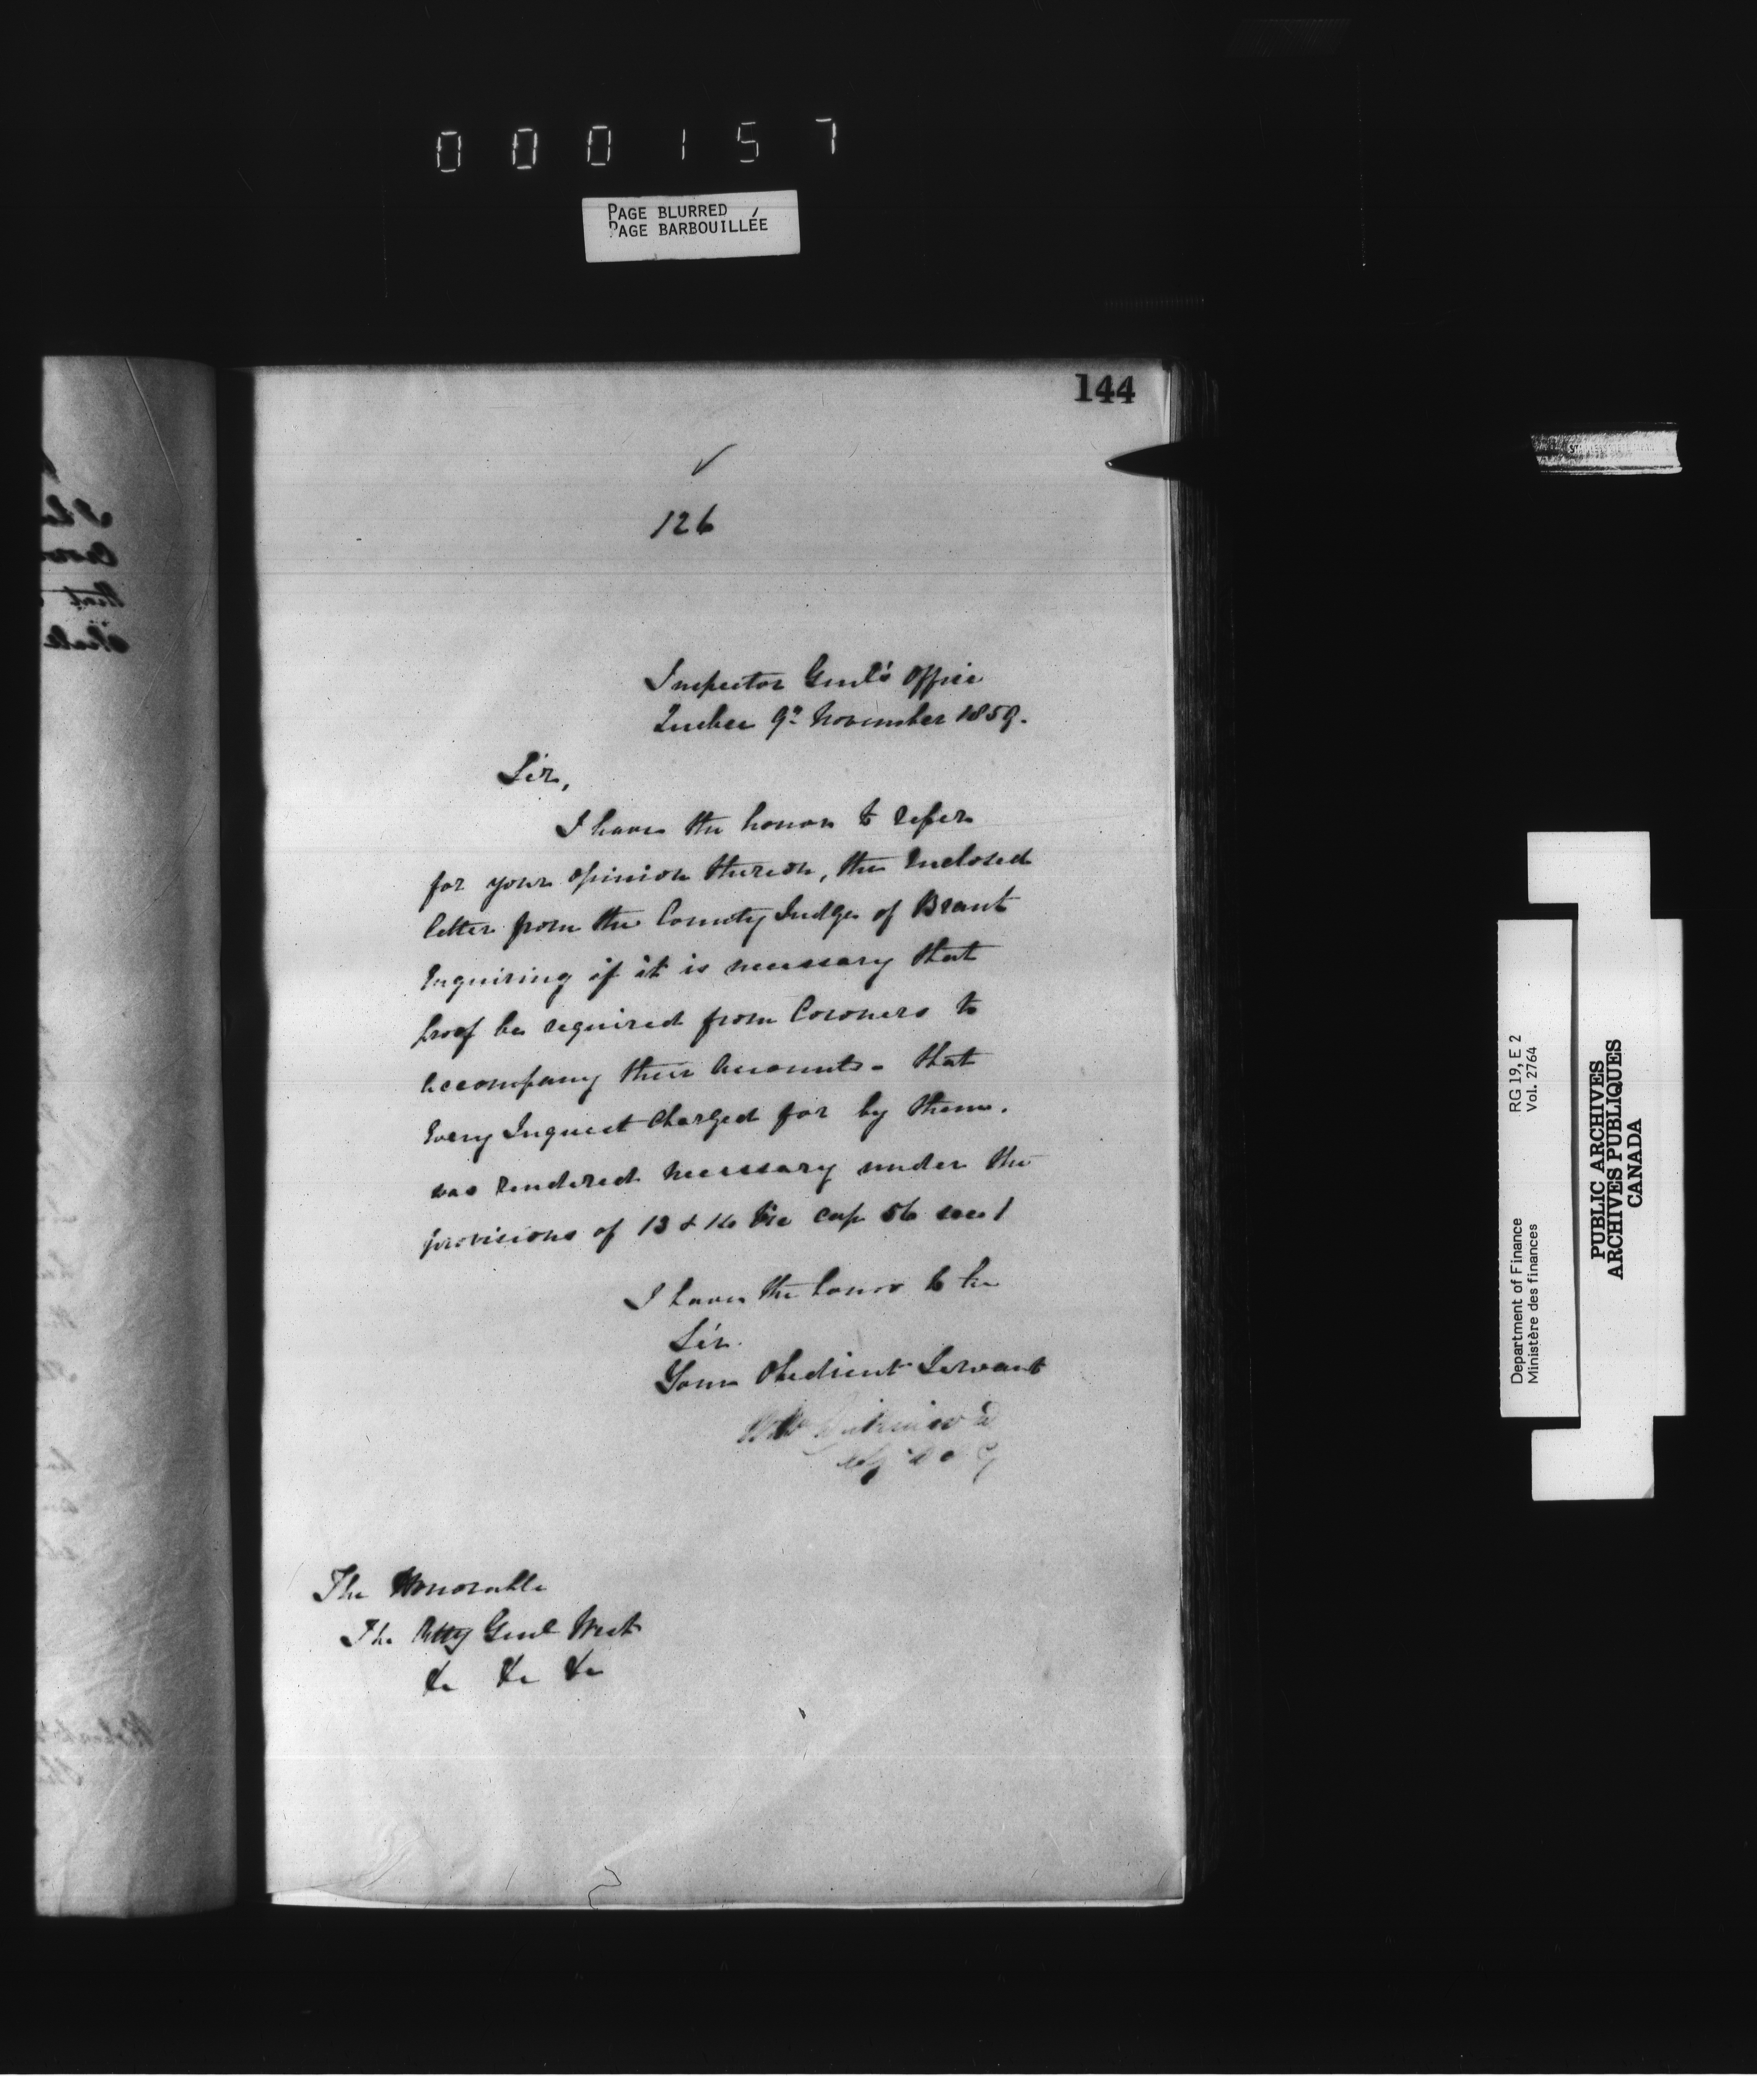 000157
PAGE BLURRED
PAGE BARBOUILLÉE
144
126
Inspector Genl's Office
Quebec 9th November 1859.
Sir,
I have the honor to refer
for your opinion thereon, the Enclosed
letter from the County Judge of Brant
Enquiring if it is necessary that
proof be required from Coroners to
accompany their Accounts - that
Every Inquest Charged for by them.
was rendered necessary under the
provisions of 13 & 14 Vic cap 56 sec 1
I have the honor to be
Sir
Your Obedient Servant
Wm Dickinson
The Honorable
The Atty Genl West
&c &c &c
RG 19, E 2
Vol. 2764
Department of Finance
Ministère des finances
PUBLIC ARCHIVES
ARCHIVES PUBLIQUES
CANADA